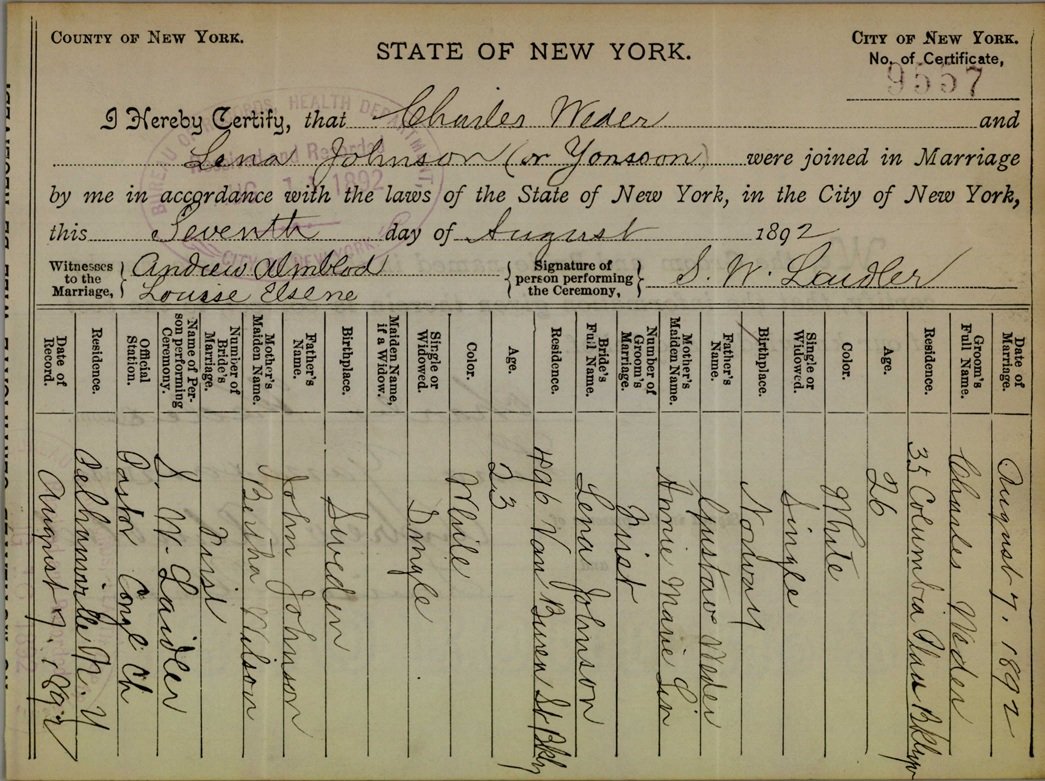 COUNTY OF NEW YORK.
STATE OF NEW YORK.
CITY OF NEW YORK.
No. of Certificate,
9557
I Hereby Certify, that Charles Weder and
Lena Johnson (or Yonsoon) were joined in Marriage
by me in accordance with the laws of the State of New York, in the City of New York,
this Seventh day of August 1892
Witnesses to the Marriage, Andrew Almblod
Louise Elsene
Signature of person performing the Ceremony, S. W. Laidler
Date of Marriage. August 7, 1892
Groom's Full Name. Charles Weder
Residence. 35 Columbia Place Bklyn
Age. 26
Color. White
Single or Widowed. Single
Birthplace. Norway
Father's Name. Gustav Weder
Mother's Maiden Name. Annie Marie Lin
Number of Groom's Marriage. First
Bride's Full Name. Lena Johnson
Residence. 496 Van Buren St Bkly
Age. 23
Color. White
Single or Widowed. Single
Maiden Name, if a Widow.
Birthplace. Sweden
Father's Name. John Johnson
Mother's Maiden Name. Bertha Wilson
Number of Bride's Marriage. First
Name of Person performing Ceremony. S. W. Laidler
Official Station. Pastor Congl Ch
Residence. Pelhamville N. Y
Date of Record. August 9, 1892